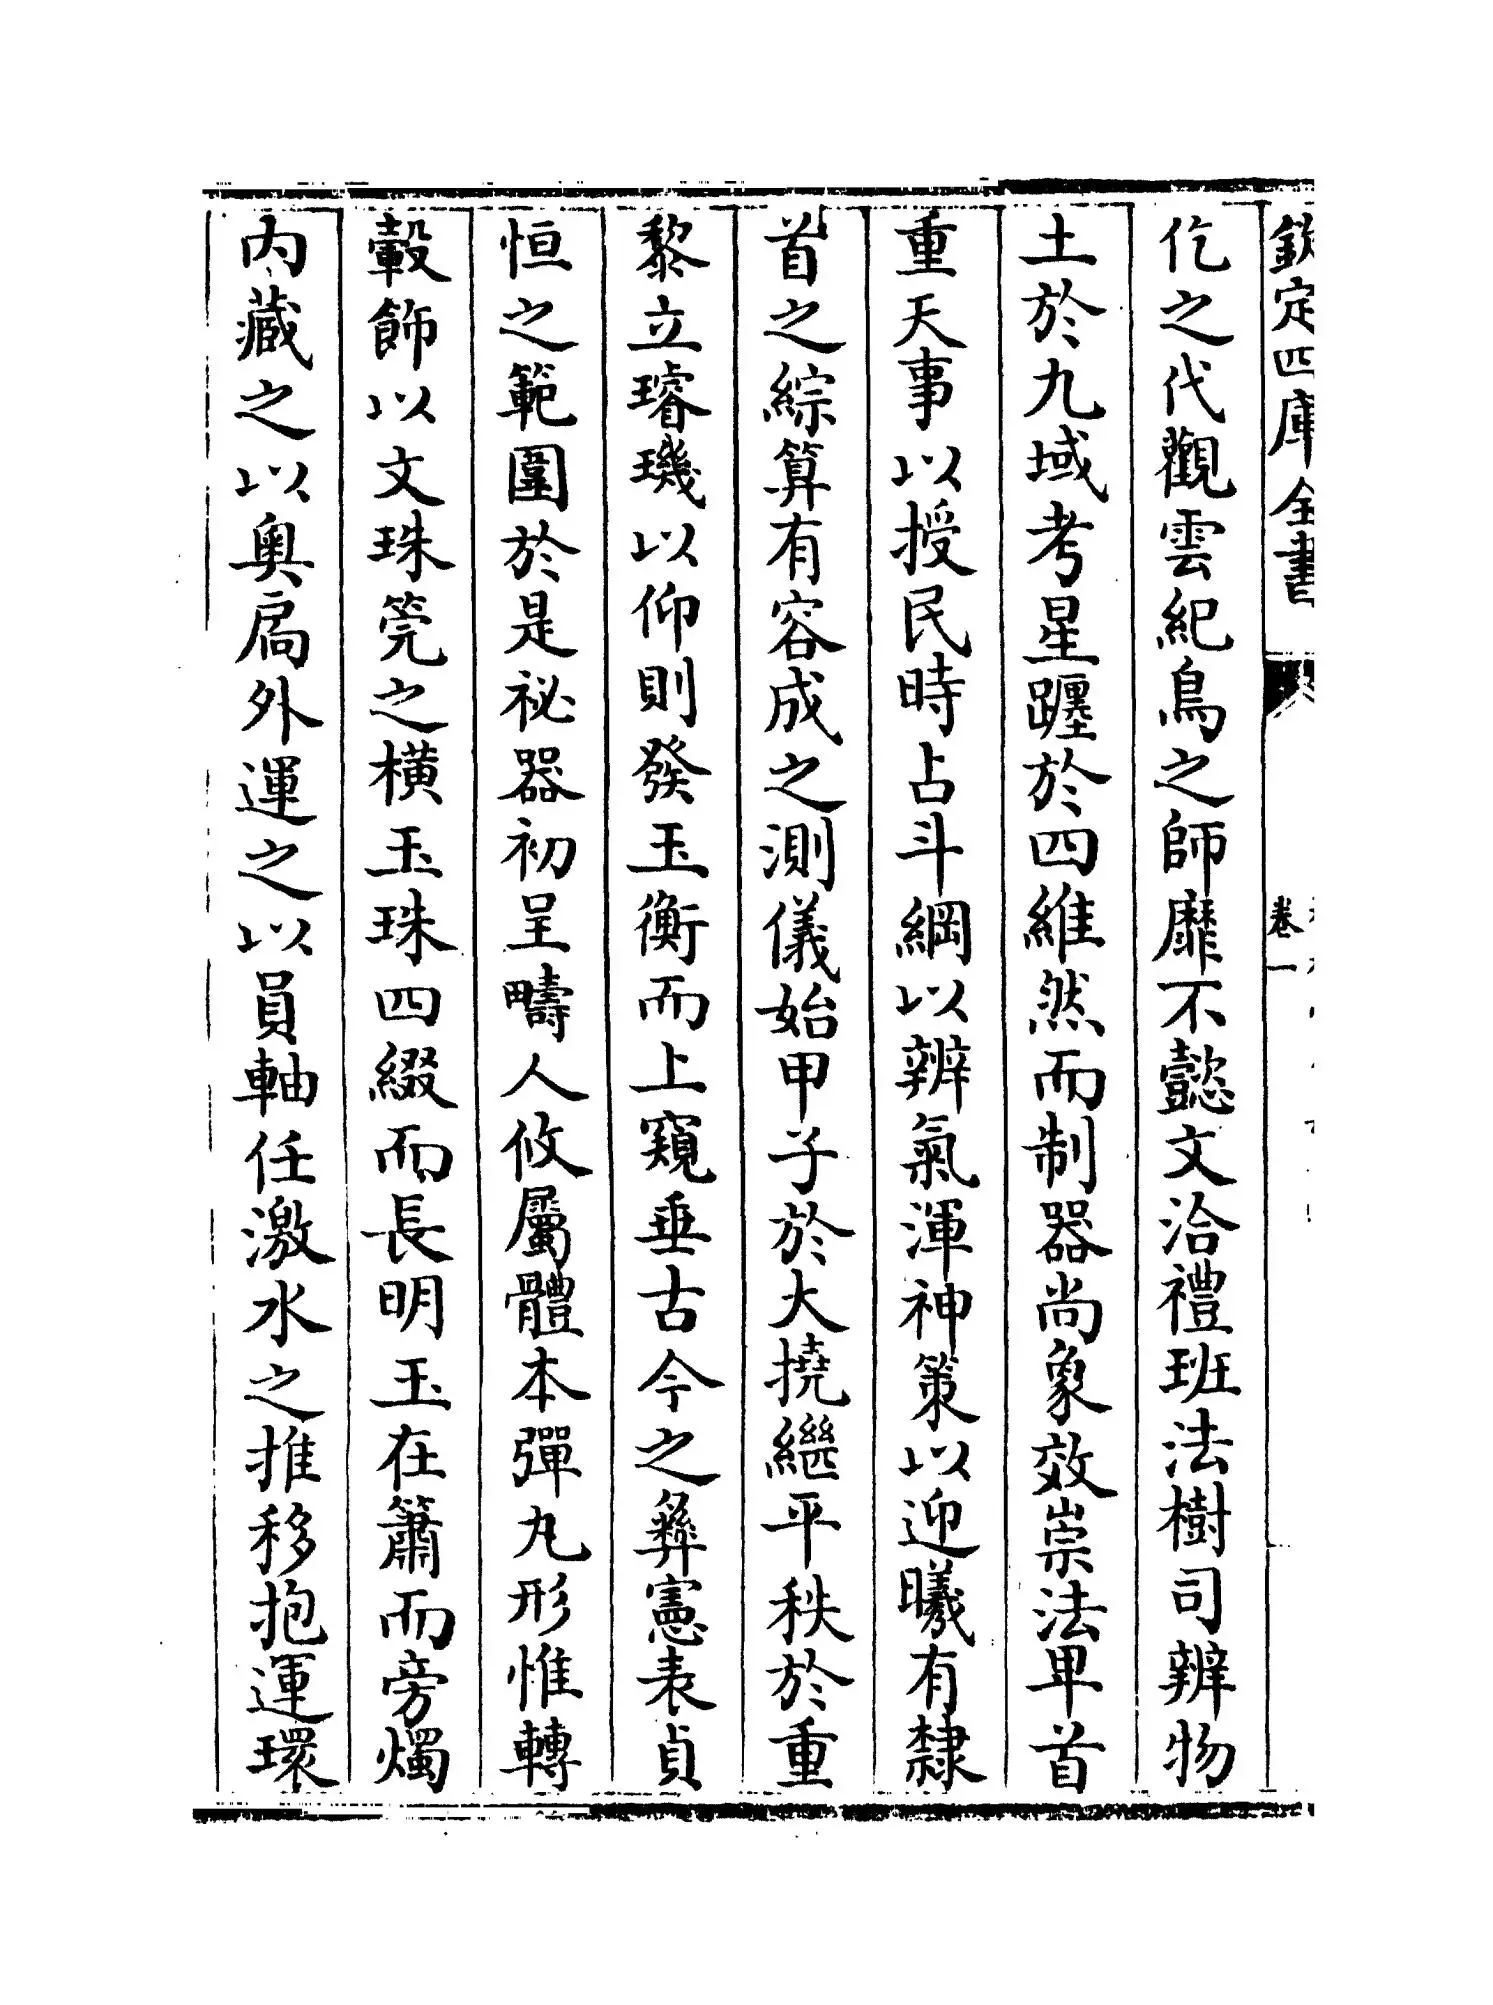 欽定四庫全書
卷一
仡之代觀雲紀鳥之師靡不懿文洽禮班法樹司辨物
土於九域考星躔於四維然而制器尚象效崇法卑首
重天事以授民時占斗綱以辨氣渾神策以迎曦有隸
首之綜算有容成之測儀始甲子於大撓繼平秩於重
黎立璿璣以仰則發玉衡而上窺垂古今之彞憲表貞
恒之範圍於是祕器初呈疇人攸屬體本彈丸形惟轉
轂飾以文珠筦之橫玉珠四綴而長明玉在簫而旁燭
內藏之以奥扄外運之以員軸任激水之推移抱運環